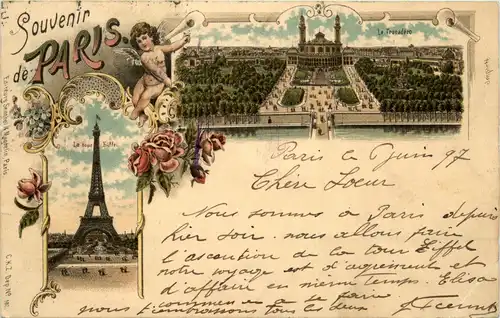 Souvenir
de PARIS.
Le Trocadéro
La Tour Eiffel
Paris le 6 Juin 97
Chère Soeur
Nous sommes a Paris depuis
hier soir. nous allons faire
l'ascention de la tour Eiffel
notre voyage est d'agrements et
d'affaire en meme temps. Elisa
commence a se faire
nous t'embrassons tous les deux
C.K.Z. Dep. No